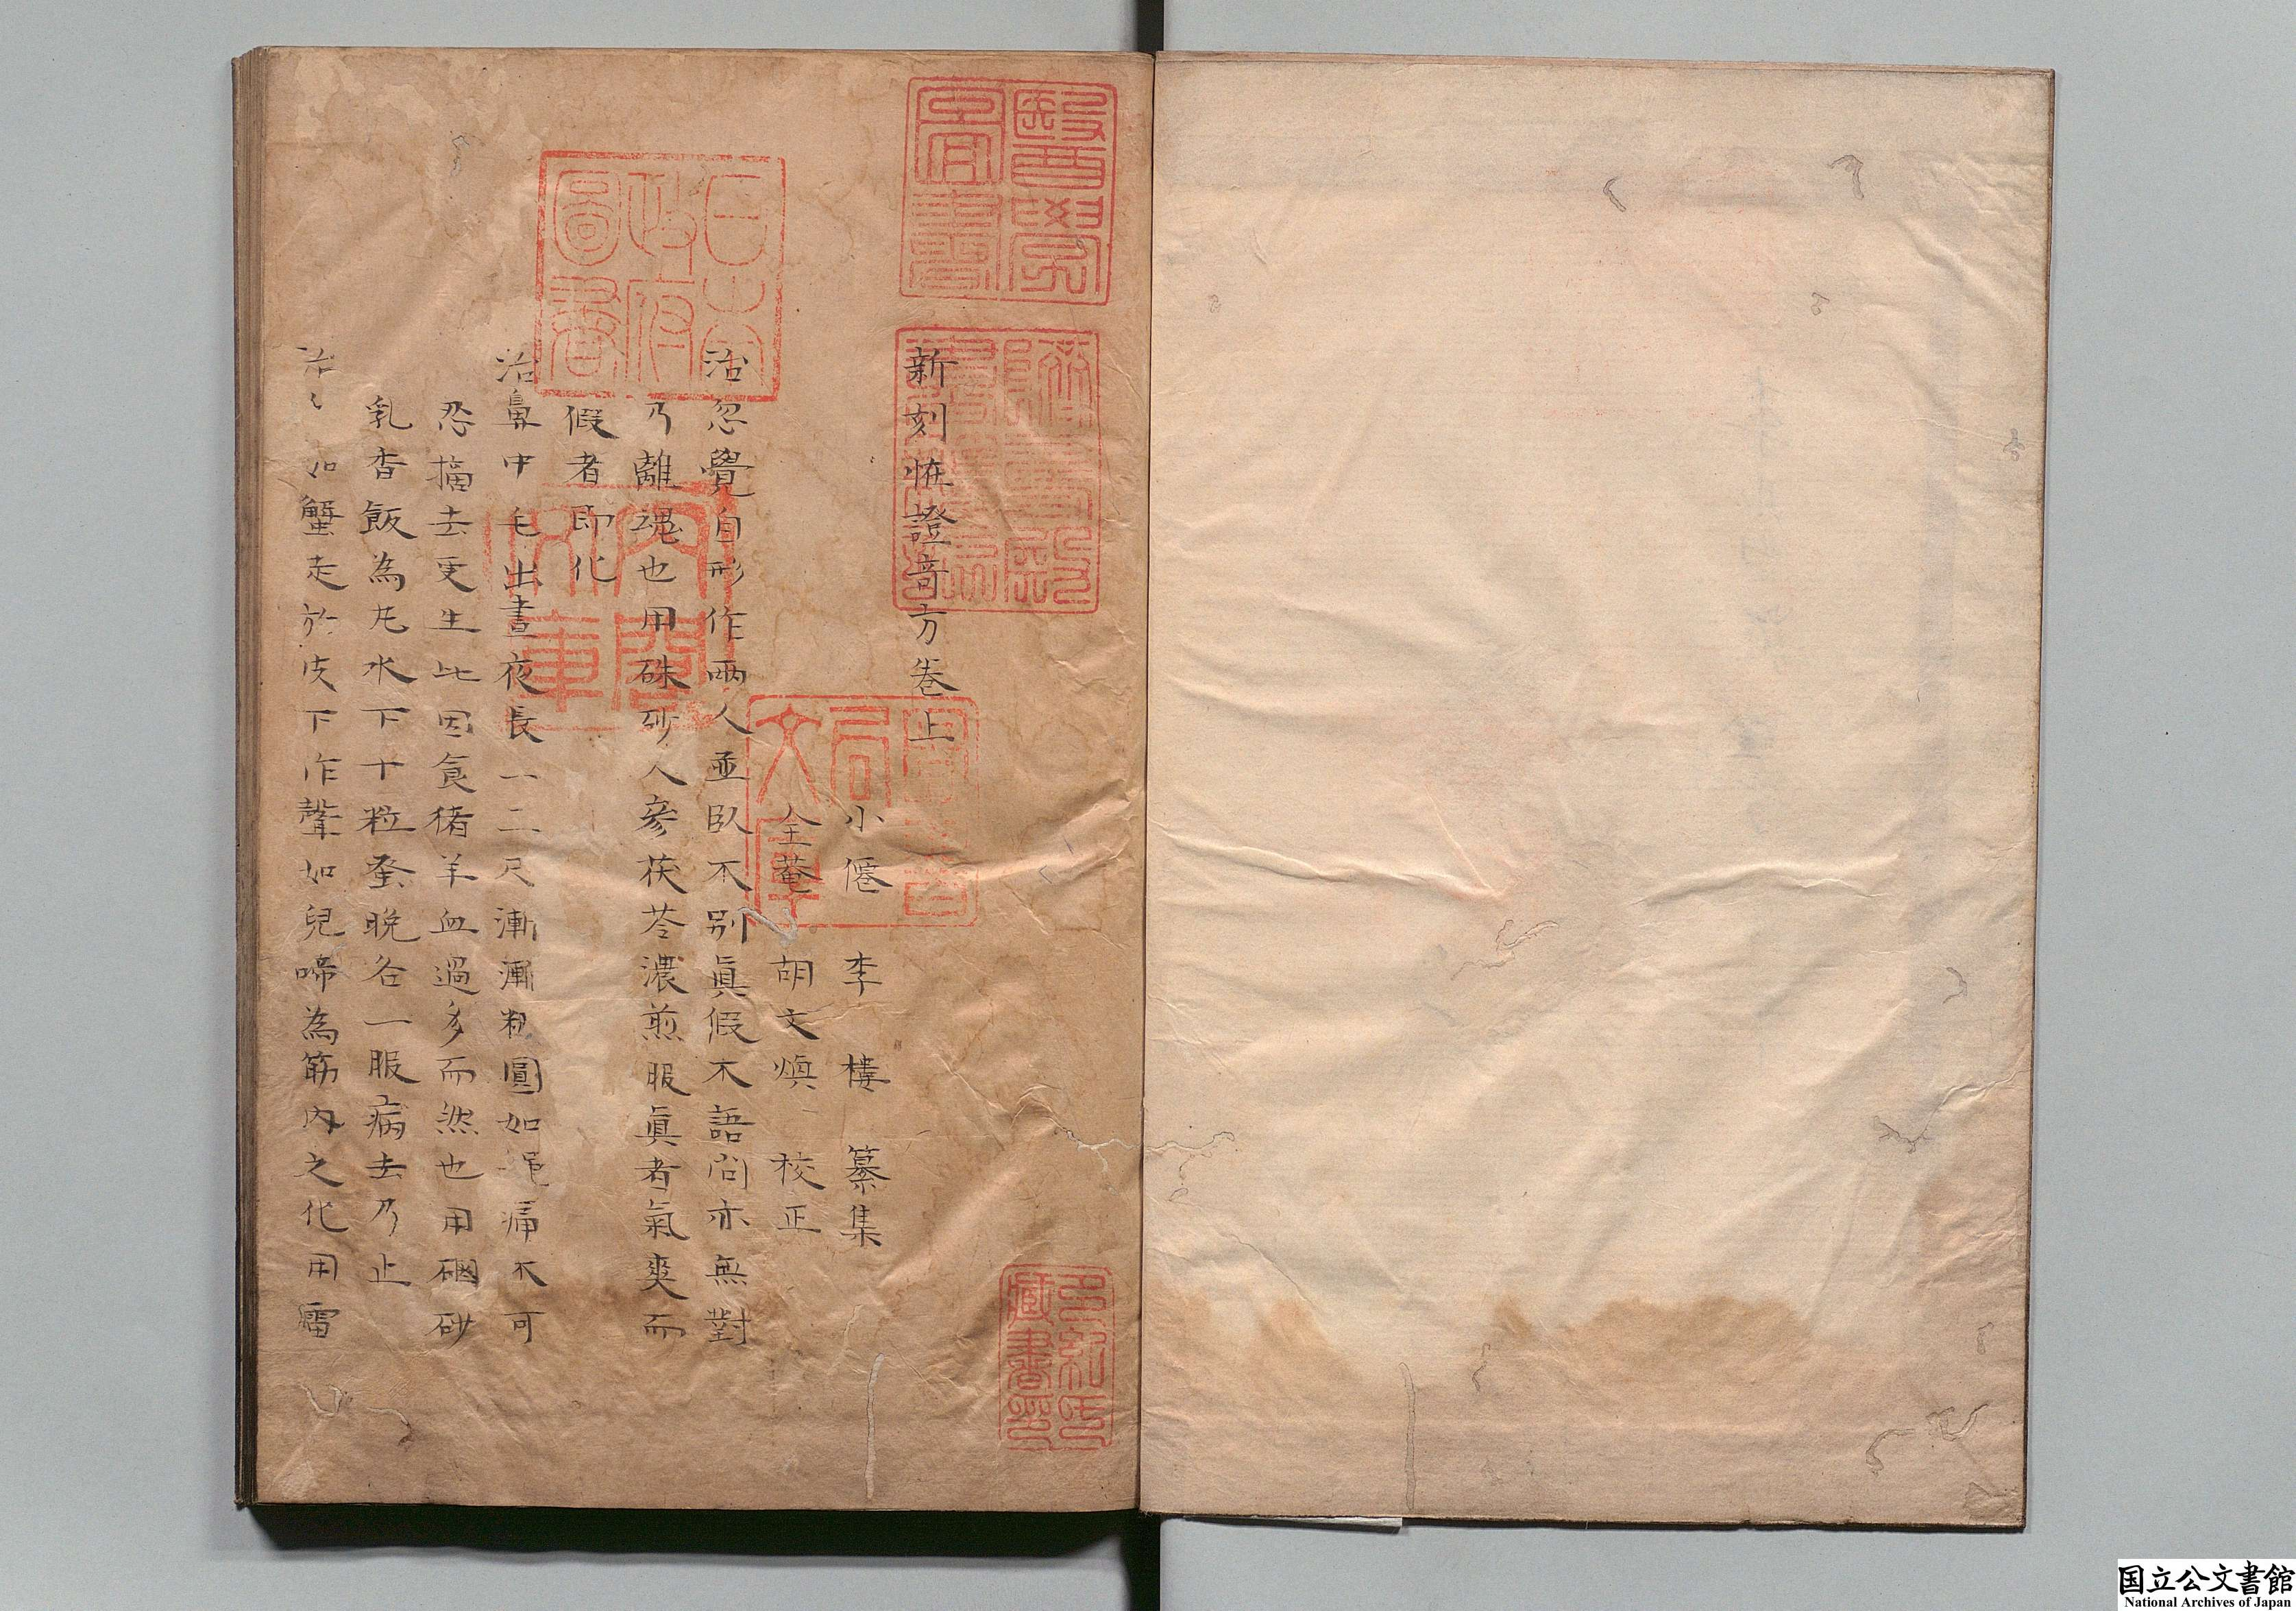 新刻恠證竒方卷上
小僊 李樓 纂集
全菴 胡文煥 校正
治忽覺自形作兩人並臥不别眞假不語問亦無對
乃離魂也用硃砂人參茯苓濃煎服眞者氣爽而
假者即化
治鼻中毛出晝夜長一二尺漸漸粗圓如繩痛不可
忍搐去更生此因食猪羊血過多而然也用硇砂
乳香飯為丸水下十粒蚤晚各一服病去乃止
治如蟹走於皮下作聲如兒啼為筋肉之化用雷
醫學圖書
躋壽殿書籍記
日本政府圖書
内閣文庫
多紀氏藏書印
国立公文書館
National Archives of Japan